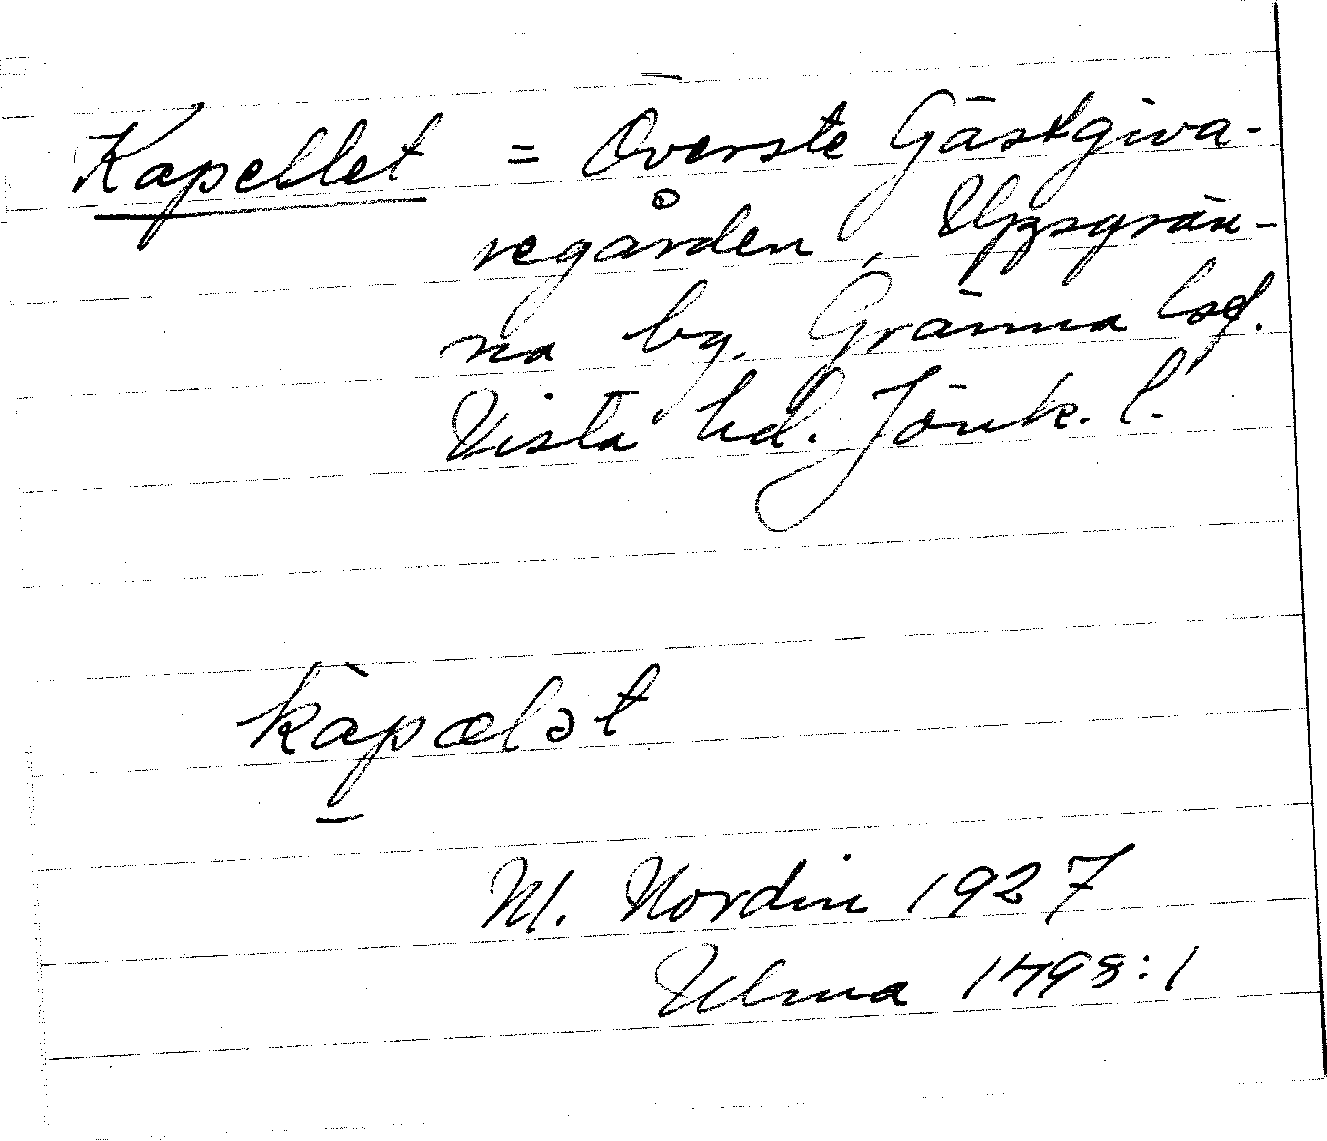 Kapellet = Överste Gästgiva-
regården, Uppgrän-
na by. Gränna lsf.
Vista hd. Jönk. l.
kapælət
M. Nordin 1927
Ulma 1498:1